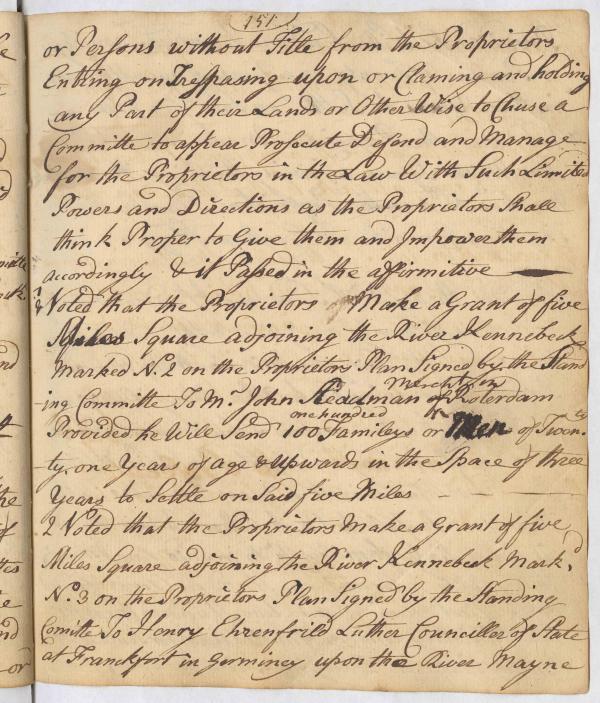 151
or Persons without Title from the Proprietors
Entring on Trespasing upon or Claming and holding
any Part of their Lands or Other Wise to Chuse a
Committe to appear Prosocute Defend and Manage
for the Proprietors in the Law With Such Limited
Powers and Directions as the Proprietors Shall
think Proper to Give them and Impower them
accordingly & it Passed in the affirmitive
Voted that the Proprietors Make a Grant of five
Miles Square adjoining the River Kennebeck
Marked No. 2 on the Proprietors Plan Signed by the Stand
Merchant in
-ing Committe To Mr. John Steadman of Roterdam
one hundred
Provided he Will Send 100 Famileys or Men of Twen-
ty-one Years of age & upwards in the Space of three
Years to Settle on Said five Miles
2 Voted that the Proprietors Make a Grant of five
Miles Square adjoining the River Kennebeck Mark'd
No. 3 on the Proprietors Plan Signed by the Standing
Comitte To Henry Ehrenfrild Luther Councillor of State
at Franckfort in Germiney upon the River Mayne